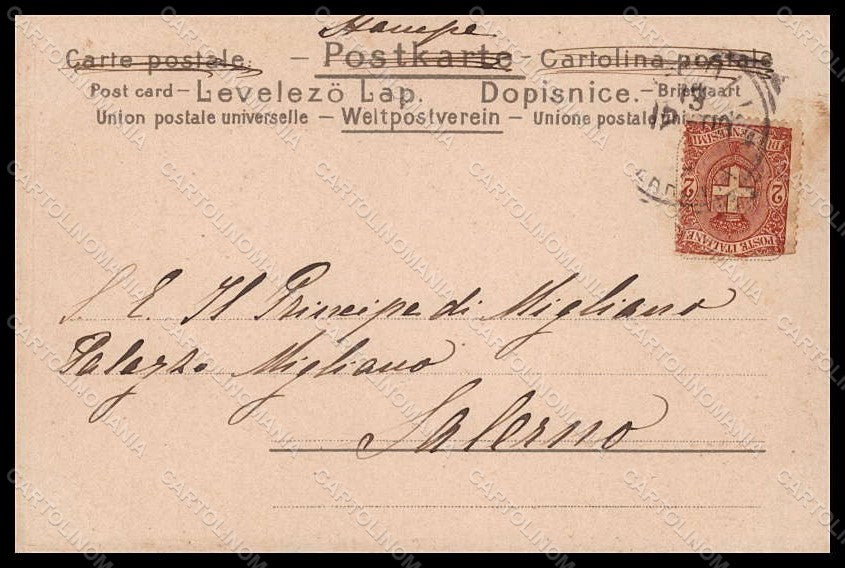 Stampe
Carte postale. – Postkarte – Cartolina postale
Post card – Levelezö Lap. Dopisnice. – Briefkaart
Union postale universelle – Weltpostverein – Unione postale
DI CENTESIMI
2 2
POSTE ITALIANE
S. E. Il Principe di Migliano
Palazzo Migliano
Salerno
CARTOLINOMANIA